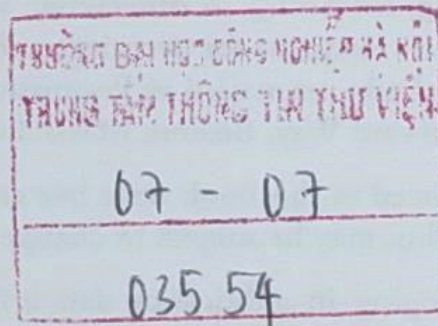 TRƯỜNG ĐẠI HỌC CÔNG NGHIỆP HÀ NỘI
TRUNG TÂM THÔNG TIN THƯ VIỆN
07 - 07
03554